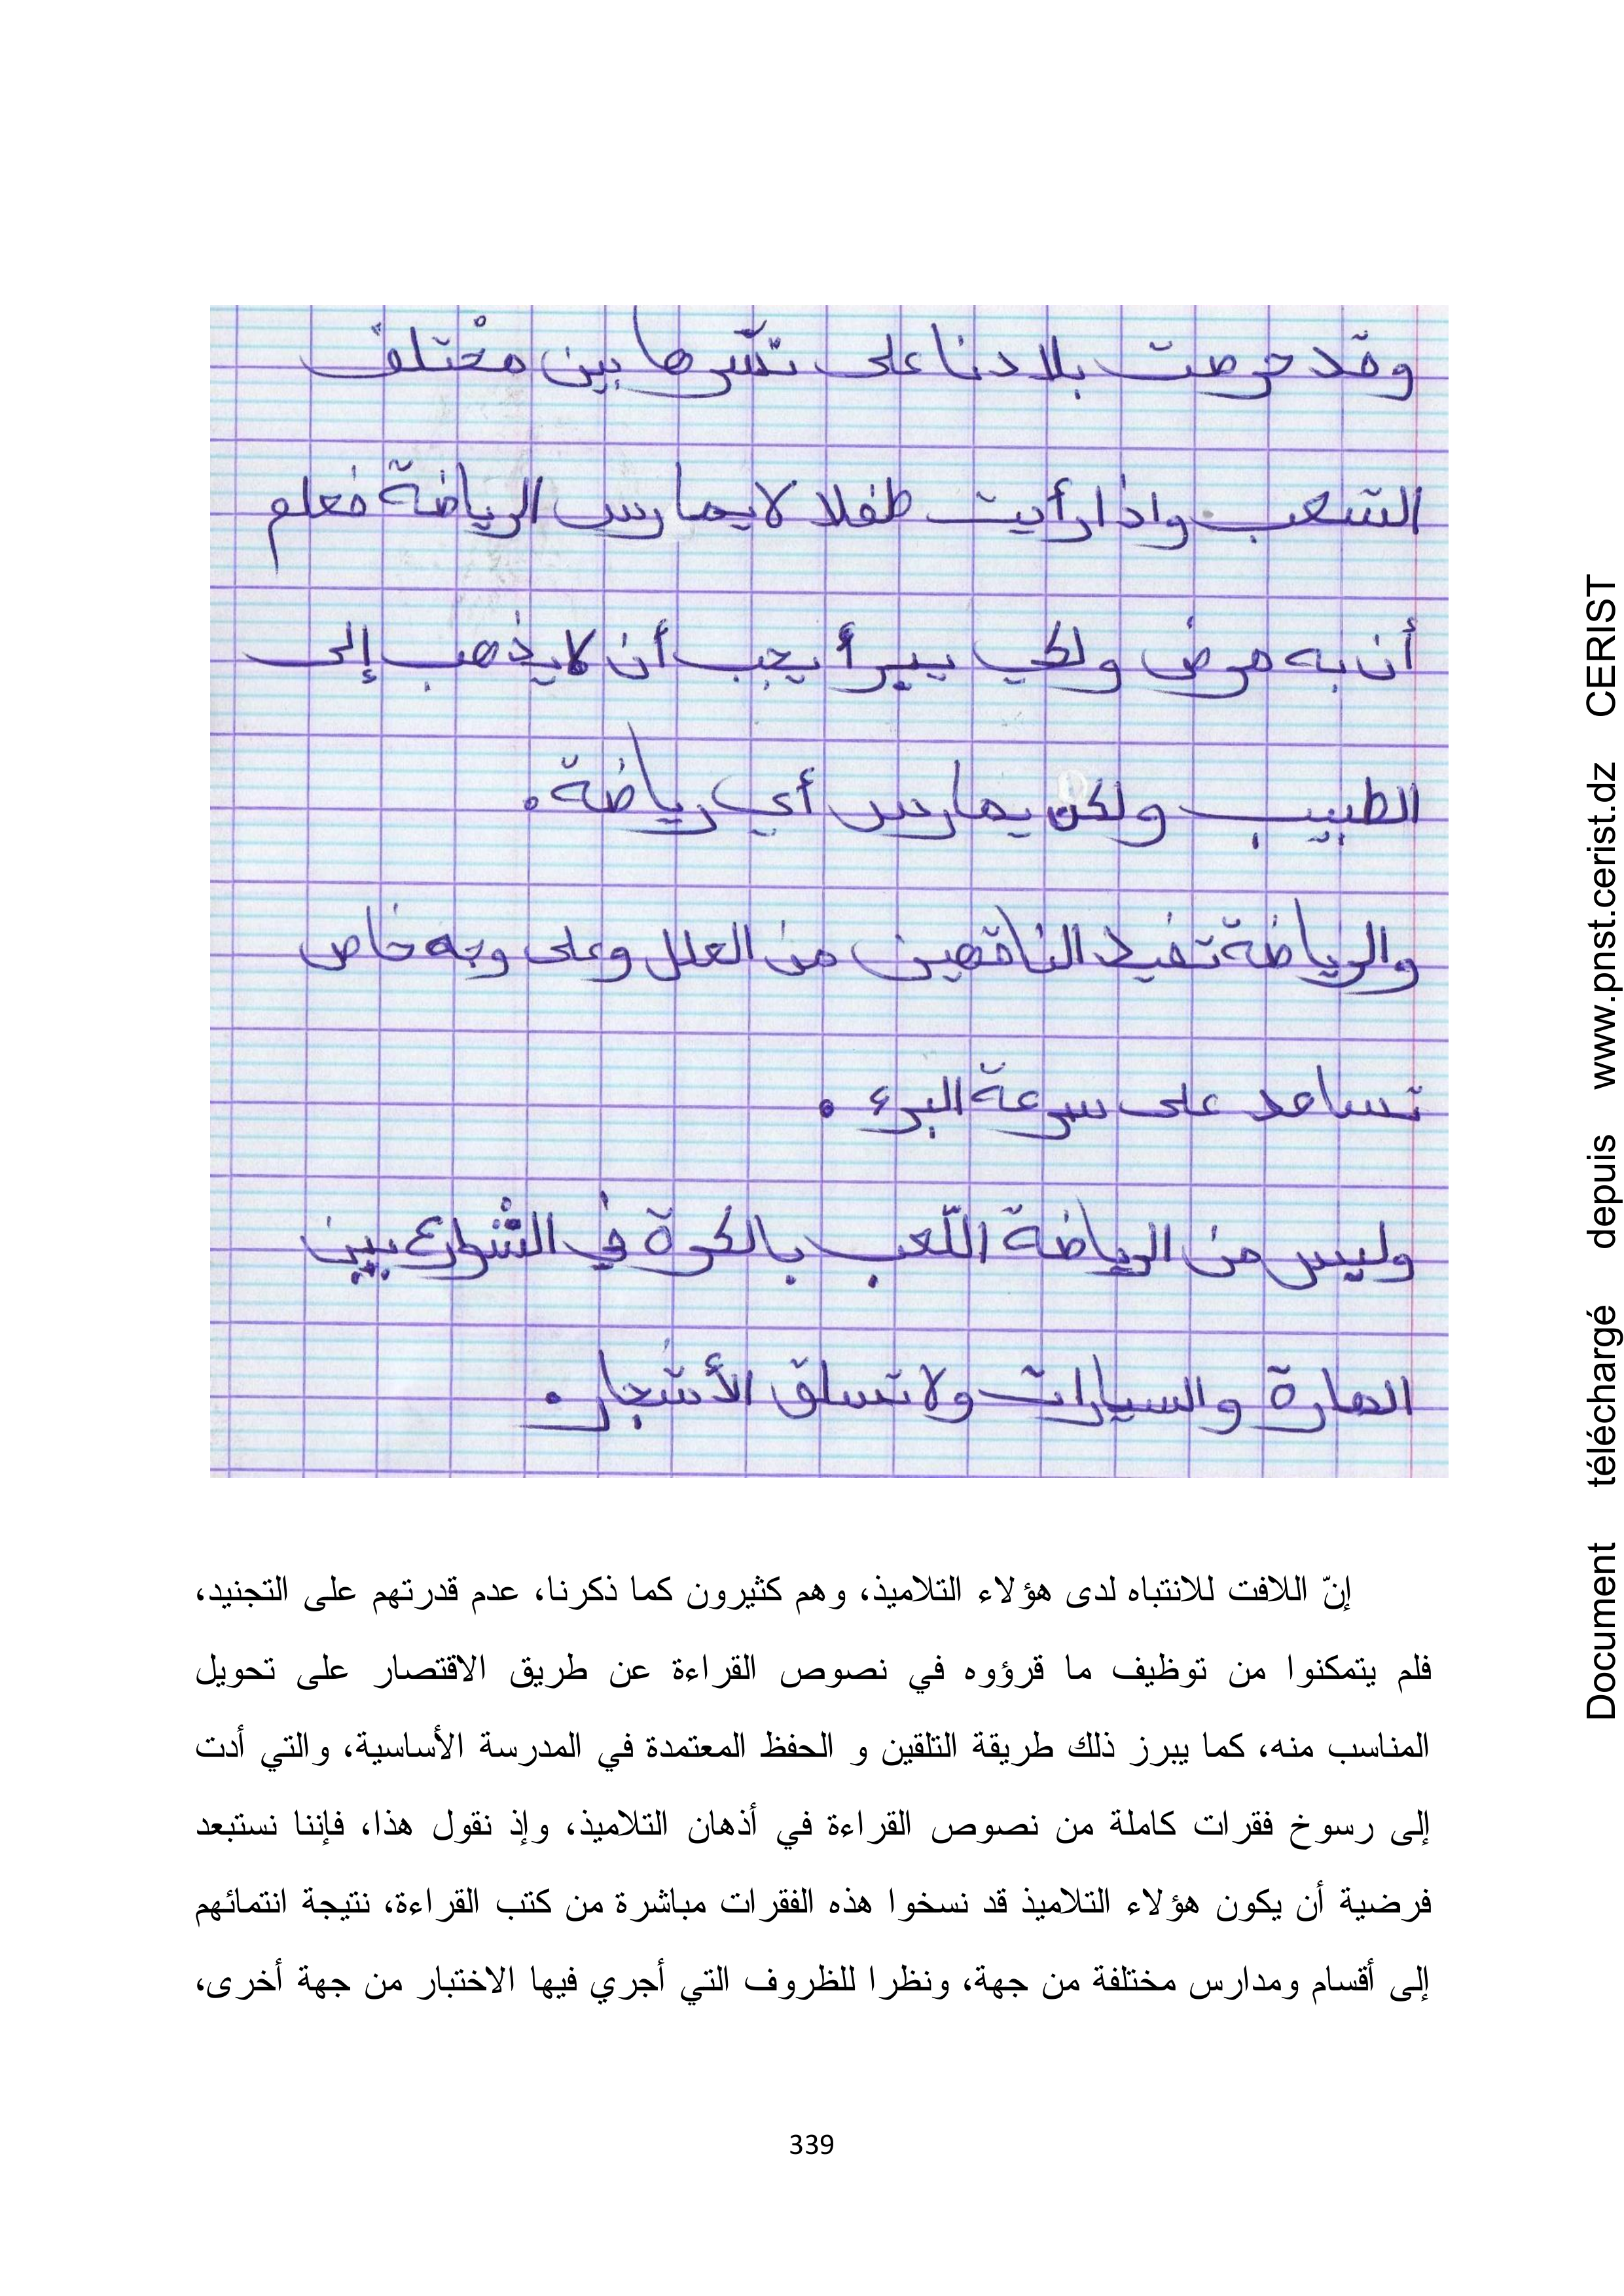 وقد حرصت بلادنا على نشرها بين مختلف
الشعب واذا رأيت طفلا لا يمارس الرياضة فعلم
أن به مرض ولكي يبرأ يجب أن لا يذهب إلى
الطبيب ولكن يمارس أي رياضة.
والرياضة تفيد الناقهين من العلل وعلى وجه خاص
تساعد على سرعة البرء.
وليس من الرياضة اللّعب بالكرة في الشوارع بين
المارة والسيارات ولا تسلق الأشجار.
إنّ اللافت للانتباه لدى هؤلاء التلاميذ، وهم كثيرون كما ذكرنا، عدم قدرتهم على التجنيد،
فلم يتمكنوا من توظيف ما قرؤوه في نصوص القراءة عن طريق الاقتصار على تحويل
المناسب منه، كما يبرز ذلك طريقة التلقين و الحفظ المعتمدة في المدرسة الأساسية، والتي أدت
إلى رسوخ فقرات كاملة من نصوص القراءة في أذهان التلاميذ، وإذ نقول هذا، فإننا نستبعد
فرضية أن يكون هؤلاء التلاميذ قد نسخوا هذه الفقرات مباشرة من كتب القراءة، نتيجة انتمائهم
إلى أقسام ومدارس مختلفة من جهة، ونظرا للظروف التي أجري فيها الاختبار من جهة أخرى،
339
Document téléchargé depuis www.pnst.cerist.dz CERIST